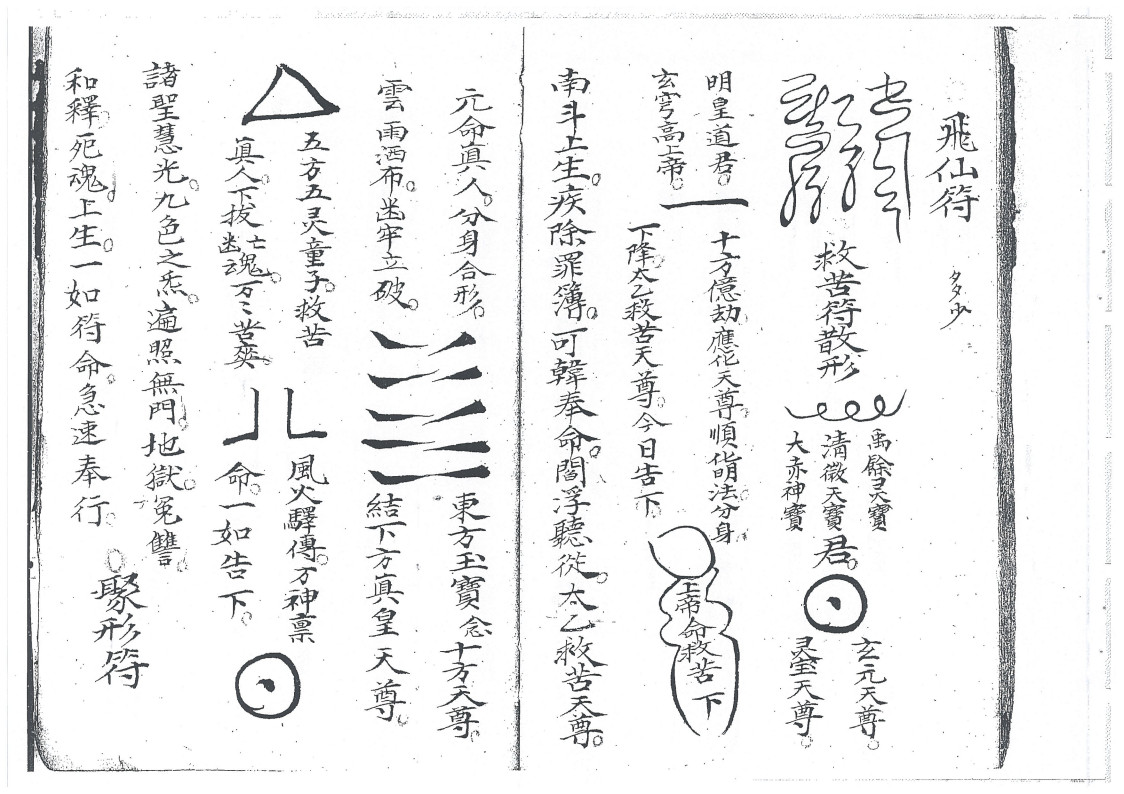 飛仙符
多少
救苦符散形
禹餘灵寶
清微天寶
大赤神寶
君。
玄元天尊。
灵宝天尊。
明皇道君。
玄穹高上帝。
十方億劫應化天尊順化明法分身。
下降太乙救苦天尊。今日告下。
上帝命救苦下
南斗上生。疾除罪簿。可韓奉命。閻浮聽從。太乙救苦天尊。
元命真人。分身合形。
雲雨洒布。幽牢立破。
東方玉寶念十方天尊。
結下方真皇天尊。
五方五灵童子。救苦
真人下拔亡魂。幽魂万〻苦爽。
風火驛傳。万神禀
命。一如告下。
諸聖慧光。九色之炁。遍照無門。地獄。冤讐。
和釋。死魂。上生。一如符命。急速奉行。
聚形符